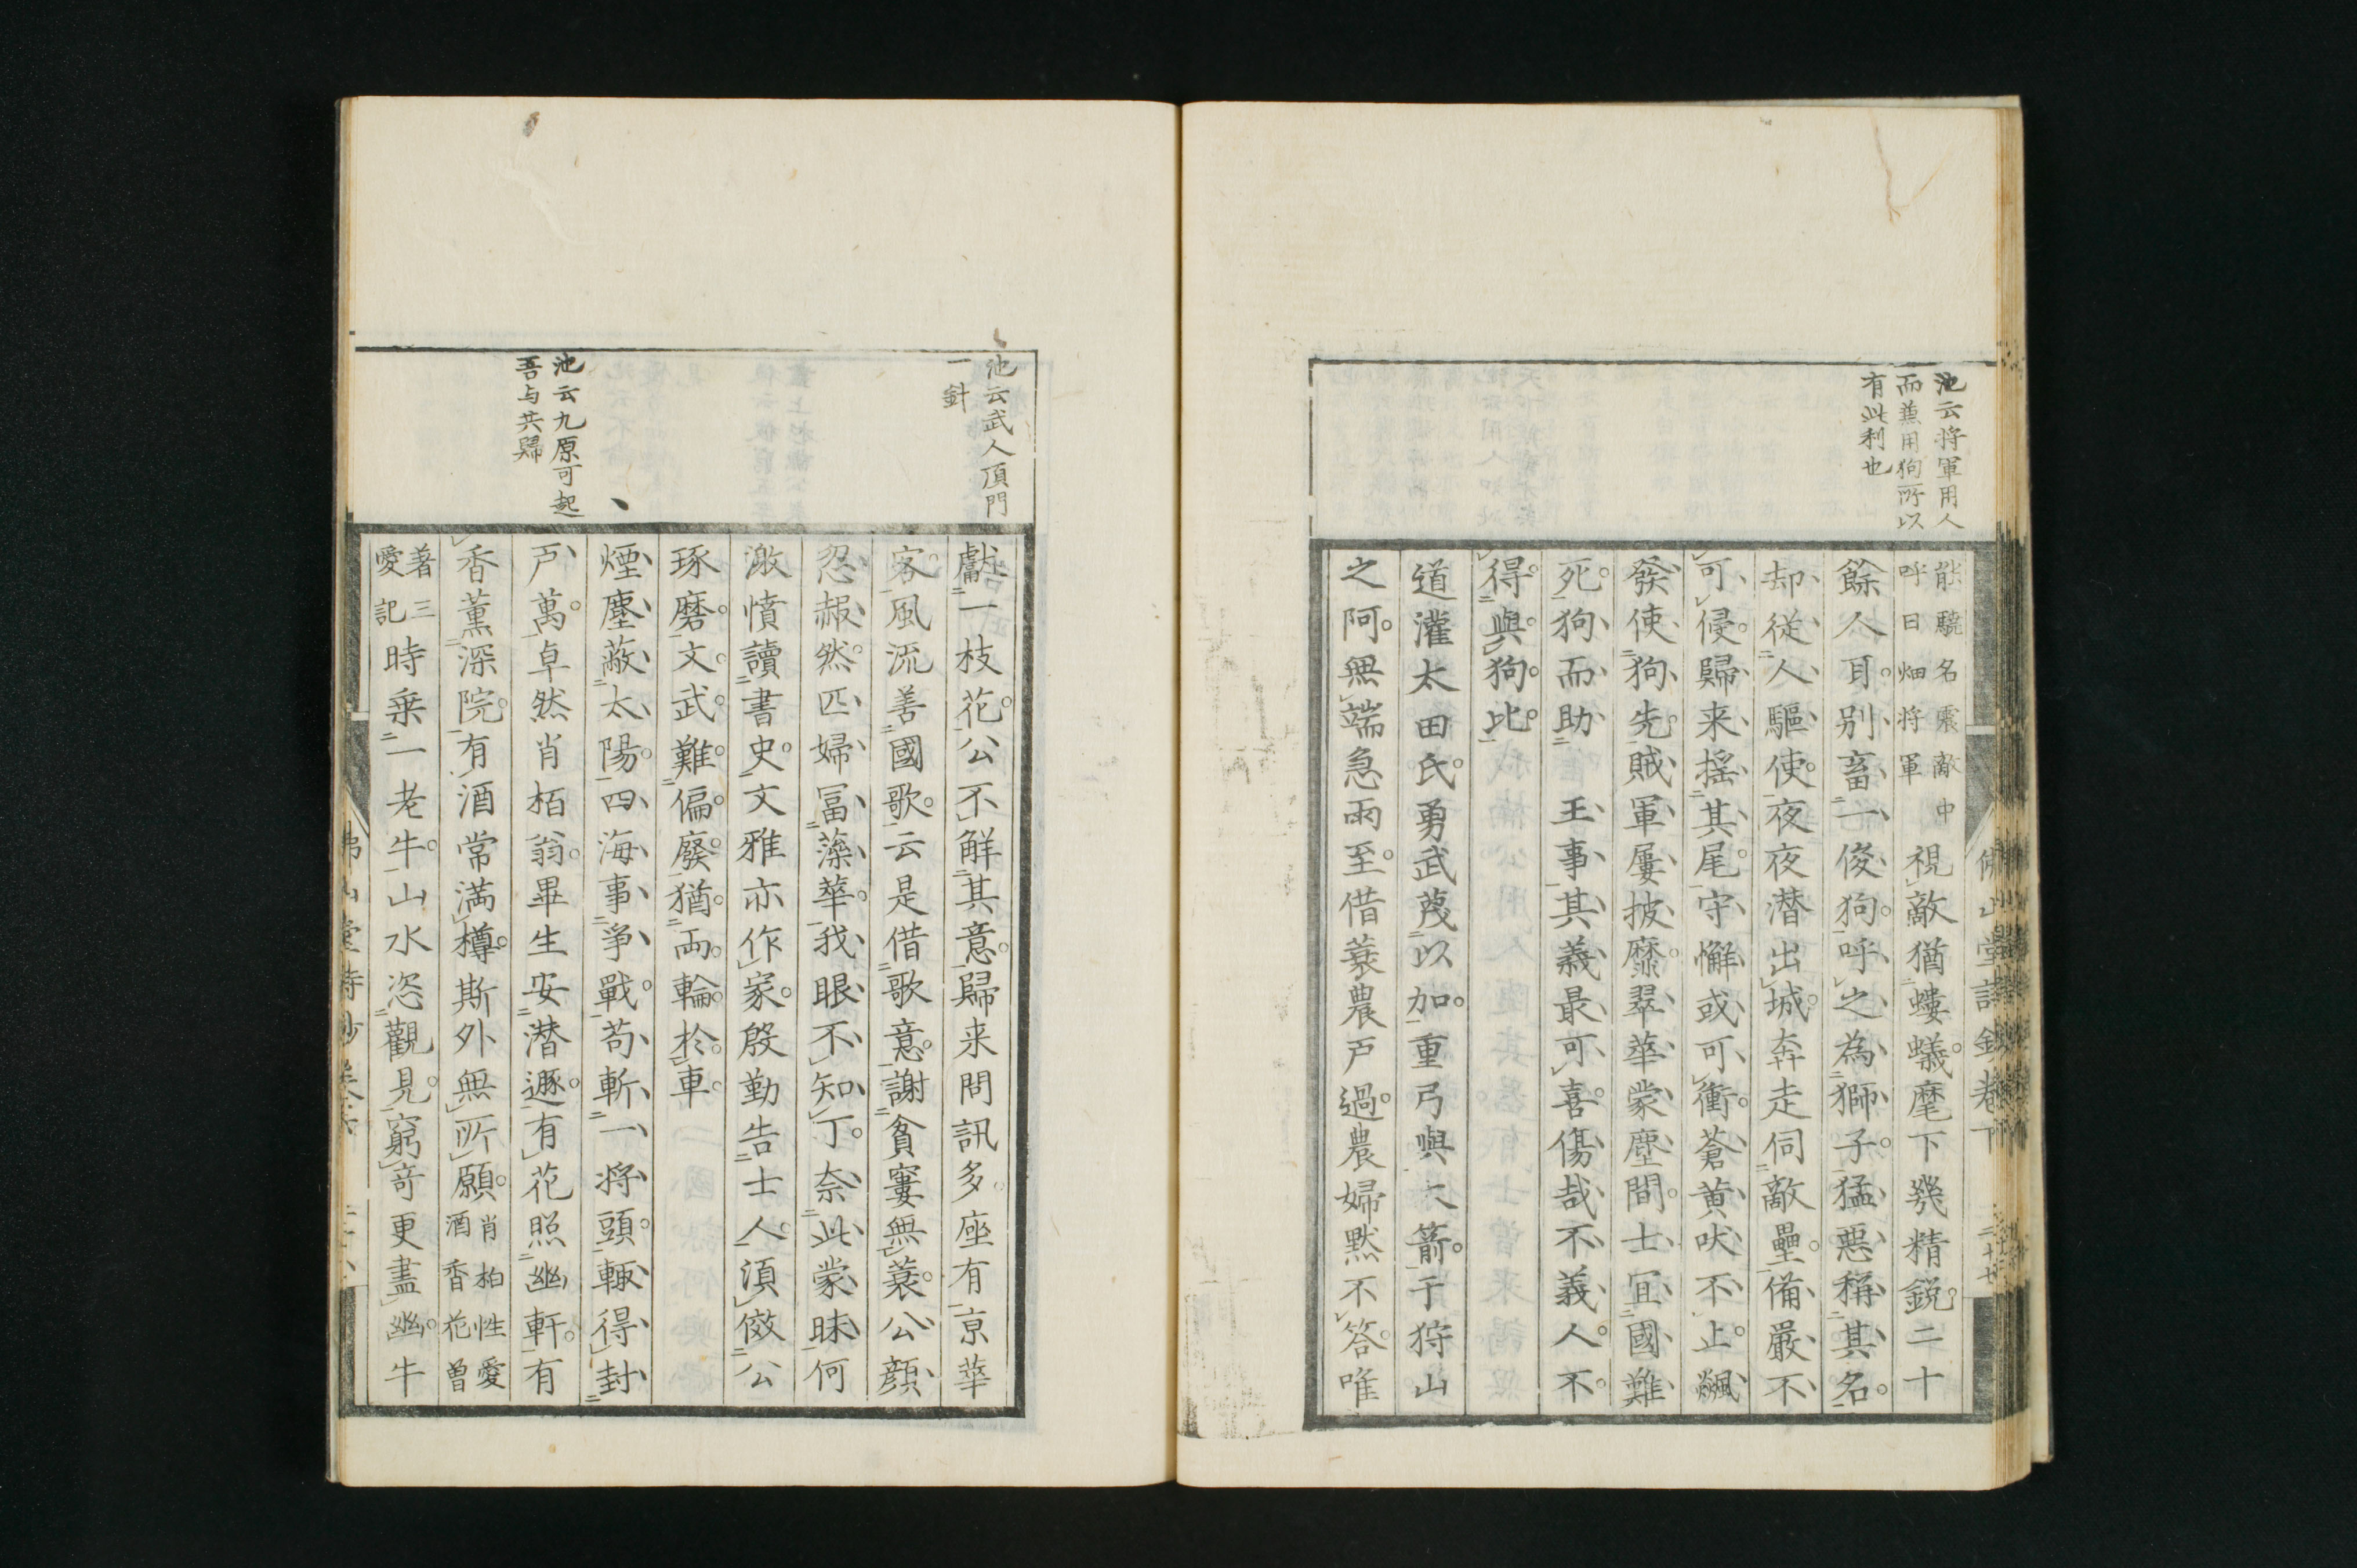 池云将軍用人
而兼用狗所以
有此利也
能驍名震敵中
呼曰畑将軍
視敵猶螻蟻麾下幾精鋭二十
餘人耳別畜一俊狗呼之為獅子猛悪稱其名
却従人驅使夜夜潜出城奔走伺敵壘備嚴不
可侵歸来揺其尾守懈或可衝蒼黄吠不止飊
發使狗先賊軍屢披靡翠華蒙塵間士冝國難
死狗而助王事其義最可喜傷哉不義人不
得與狗比
道灌太田氏勇武蔑以加重弓與大箭于狩山
之阿無端急雨至借蓑農戸過農婦黙不答唯
池云武人頂門
一針
池云九原可起
吾与共歸
獻一枝花公不解其意歸来問訊多座有京華
客風流善國歌云是借歌意謝貧窶無蓑公顔
忍赧然匹婦冨藻華我眼不知丁奈此蒙昧何
激憤讀書史文雅亦作家殷勤告士人須傚公
琢磨文武難偏廢猶兩輪於車
煙塵蔽太陽四海事爭戰苟斬一将頭輙得封
戸萬卓然肖栢翁畢生安潜遯有花照幽軒有
香薫深院有酒常満樽斯外無所願
肖柏性愛
酒香花曽
著三
愛記
時乗一老牛山水恣觀見窮竒更盡幽牛